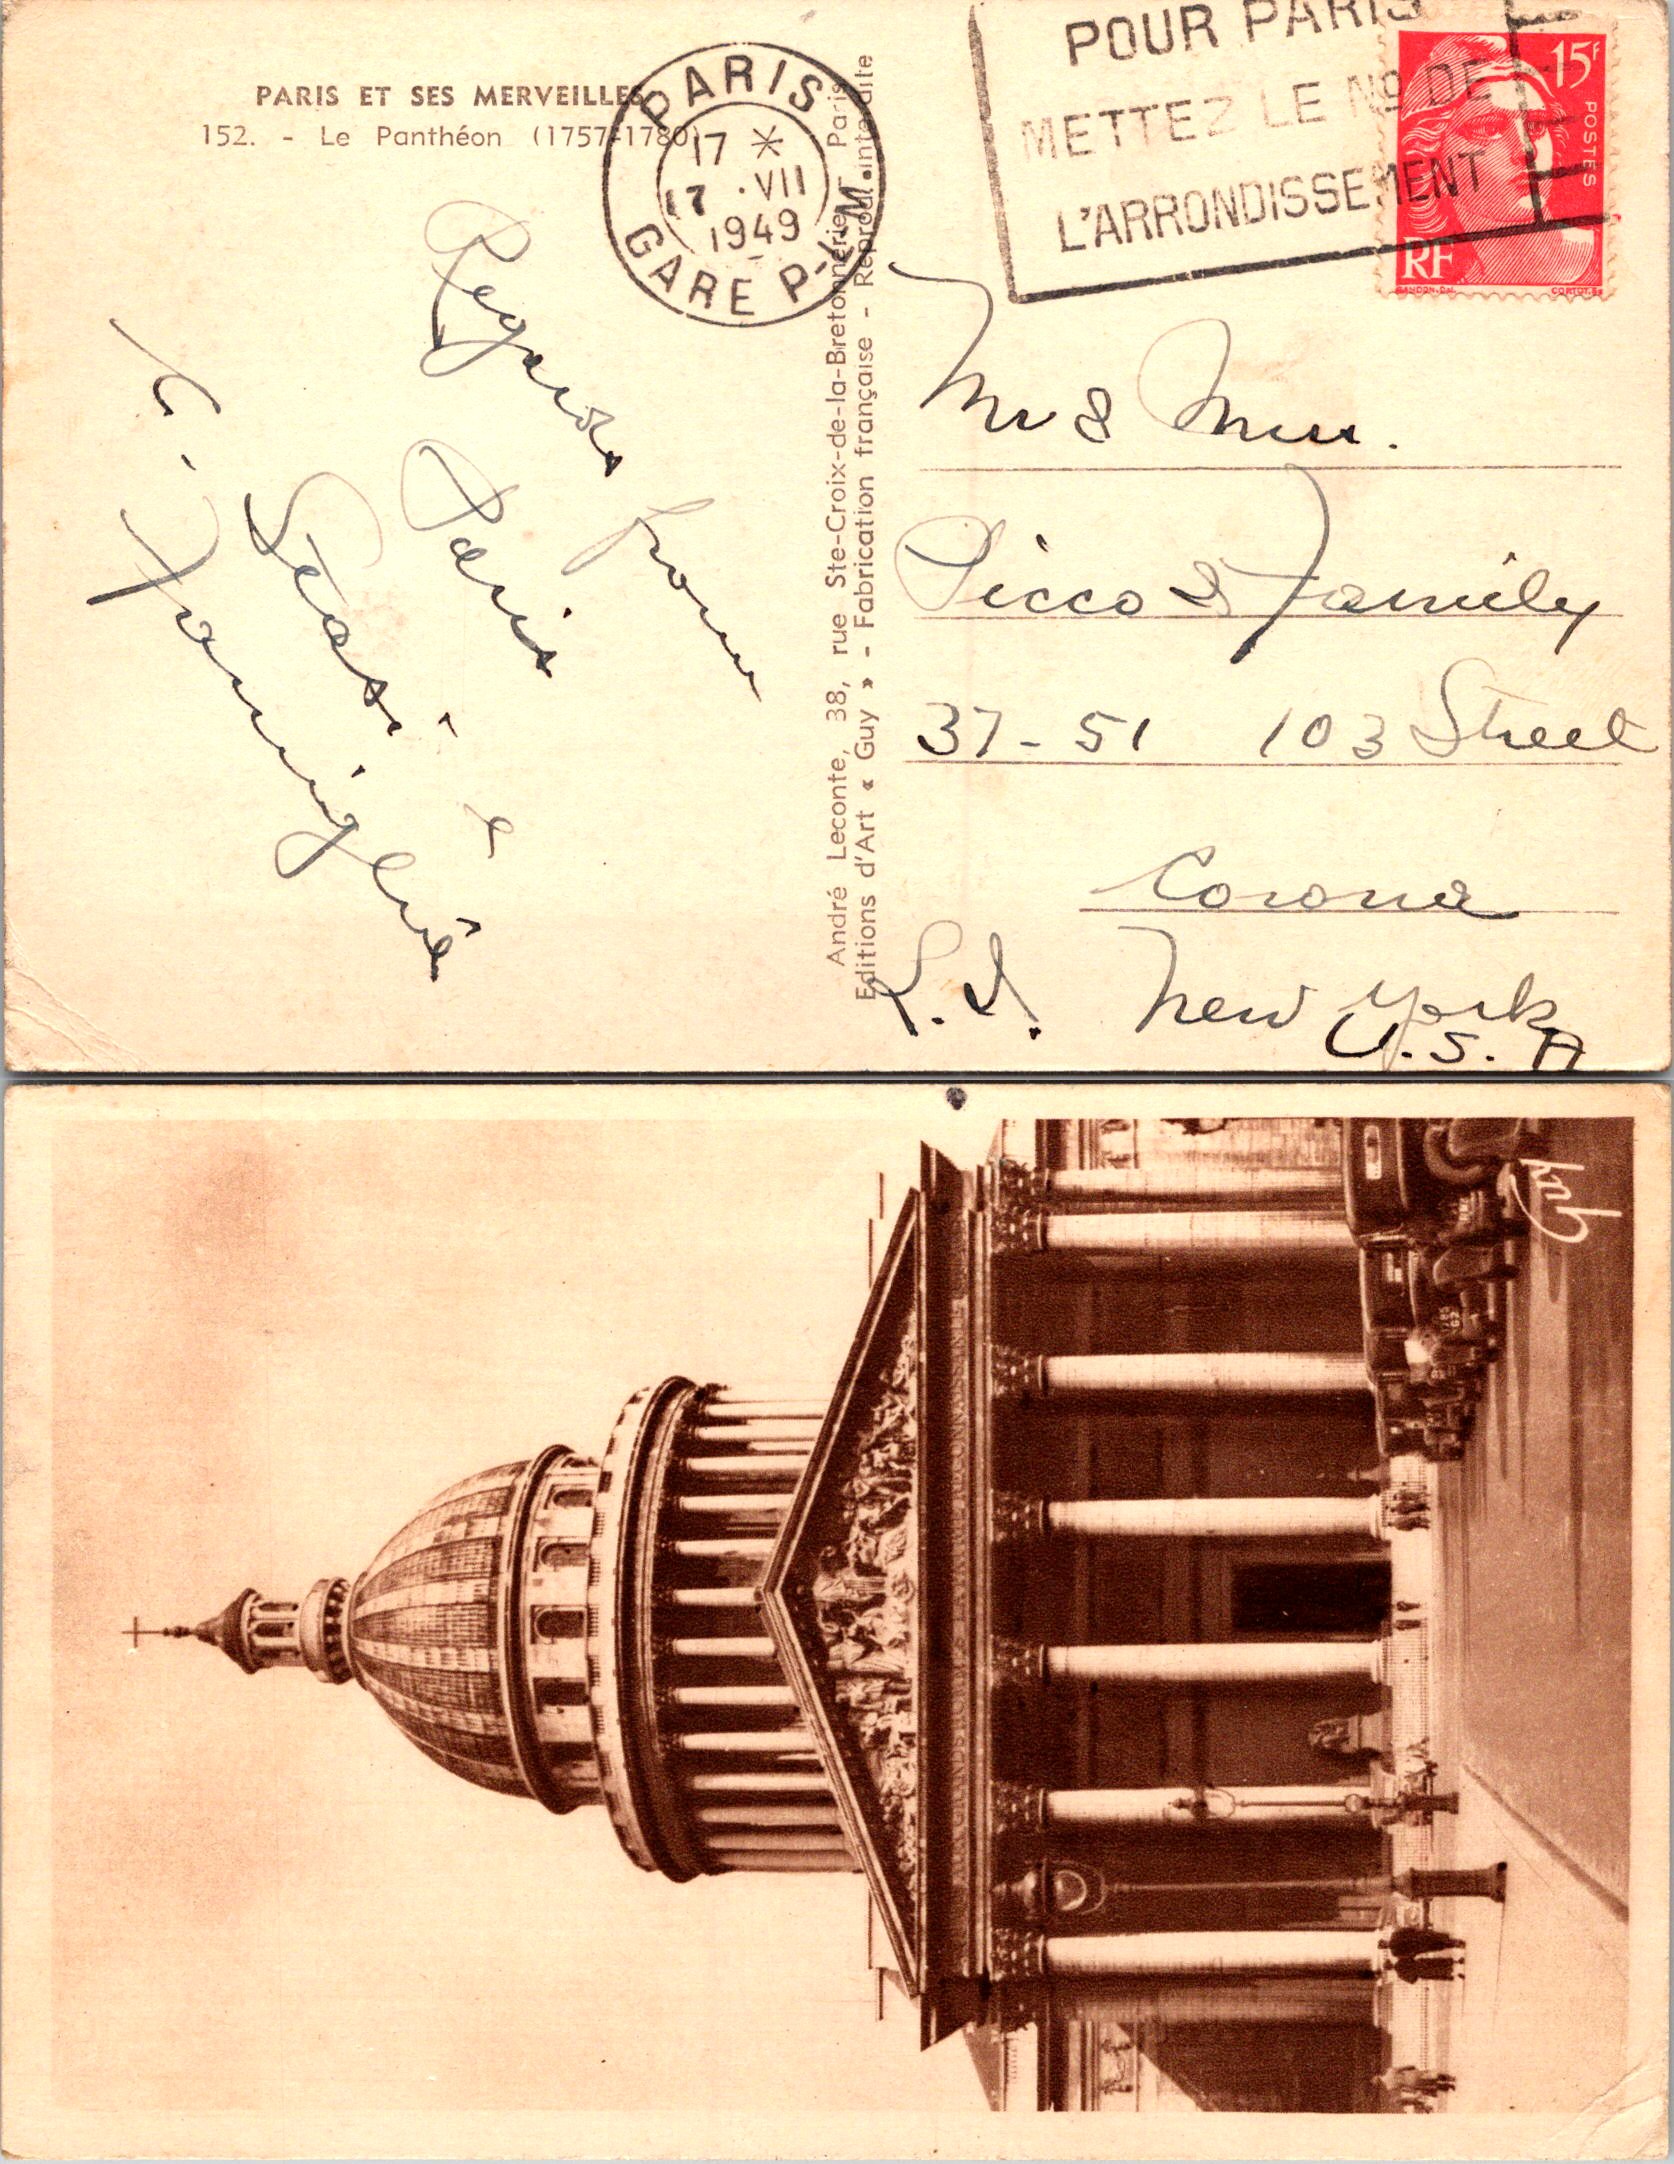 PARIS ET SES MERVEILLES
152. - Le Panthéon (1757-1780)
PARIS
17 *
17 . VII
1949
GARE P-L-M
POUR PARIS
METTEZ LE Nº DE
L'ARRONDISSEMENT
15F
POSTES
RF
GANDON.DEL
Regards from
Paris
é
Famiglia
André Leconte, 38, rue Ste-Croix-de-la-Bretonnerie - Paris
Editions d'Art « Guy » - Fabrication française - Reprod. interdite
Mr & Mrs.
Picco & Family
37-51 103 Street
Corona
L.I. New York
U.S.A
Guy